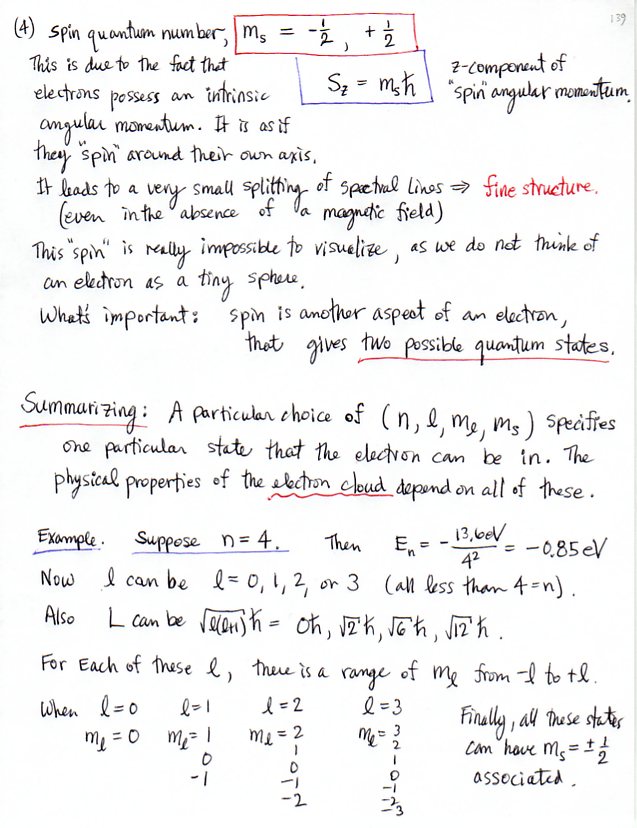 139
(4) spin quantum number, m_s = -1/2, +1/2
This is due to the fact that
electrons possess an intrinsic
S_z = m_s ħ
z-component of
"spin" angular momentum.
angular momentum. It is as if
they "spin" around their own axis.
It leads to a very small splitting of spectral lines ⇒ fine structure.
(even in the absence of a magnetic field)
This "spin" is really impossible to visualize, as we do not think of
an electron as a tiny sphere.
What's important: spin is another aspect of an electron,
that gives two possible quantum states.
Summarizing: A particular choice of (n, l, m_l, m_s) specifies
one particular state that the electron can be in. The
physical properties of the electron cloud depend on all of these.
Example. Suppose n = 4. Then E_n = - 13.6eV/4² = -0.85 eV
Now l can be l = 0, 1, 2, or 3 (all less than 4 = n).
Also L can be √l(l+1) ħ = 0ħ, √2 ħ, √6 ħ, √12 ħ.
For Each of these l, there is a range of m_l from -l to +l.
When l=0 l=1 l=2 l=3
m_l = 0 m_l = 1 m_l = 2 m_l = 3
0 1 2
-1 0 1
-1 0
-2 -1
-2
-3
Finally, all these states
can have m_s = ± 1/2
associated.